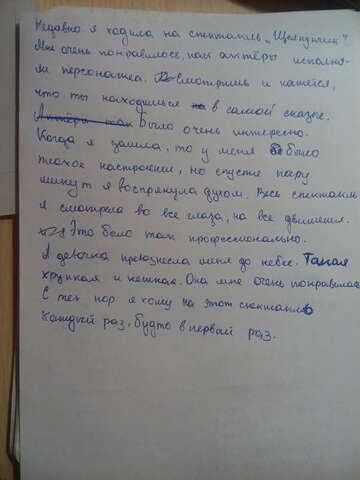 Недавно я ходила на спектакль „Щелкунчик".
Мне очень понравилось, как актёры исполня-
ли персонажей. Смотришь и кажется,
что ты находишься в самой сказке.
Актёры так Было очень интересно.
Когда я зашла, то у меня было
плохое настроение, но спустя пару
минут я воспрянула духом. Весь спектакль
я смотрела во все глаза, на все движения.
Это было так профессионально.
А девочка превознесла меня до небес. Такая
хрупкая и нежная. Она мне очень понравилась.
С тех пор я хожу на этот спектакль
каждый раз, будто в первый раз.